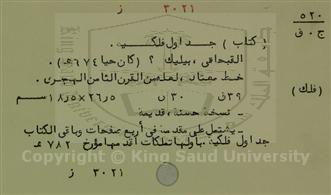 ٣٠٢١ ز
٥٢٠
ج . ق
( كتاب ) جداول فلكية .
القبحاقي ، بيليك ؟ ( كان حيا ٦٧٤ هـ )
خط معتاد ، لعله من القرن الثامن الهجري .
( فلك )
٣٩ ق ٣٠ س ٢٦٫٥×١٨٫٥ سم
نسخة حسنة ، قديمة
يشتمل على مقدمة في أربع صفحات وباقي الكتاب
جداول فلكية بأولها تملكات مؤرخ ٧٨٢ هـ
© King Saud University
٣٠٢١ ز